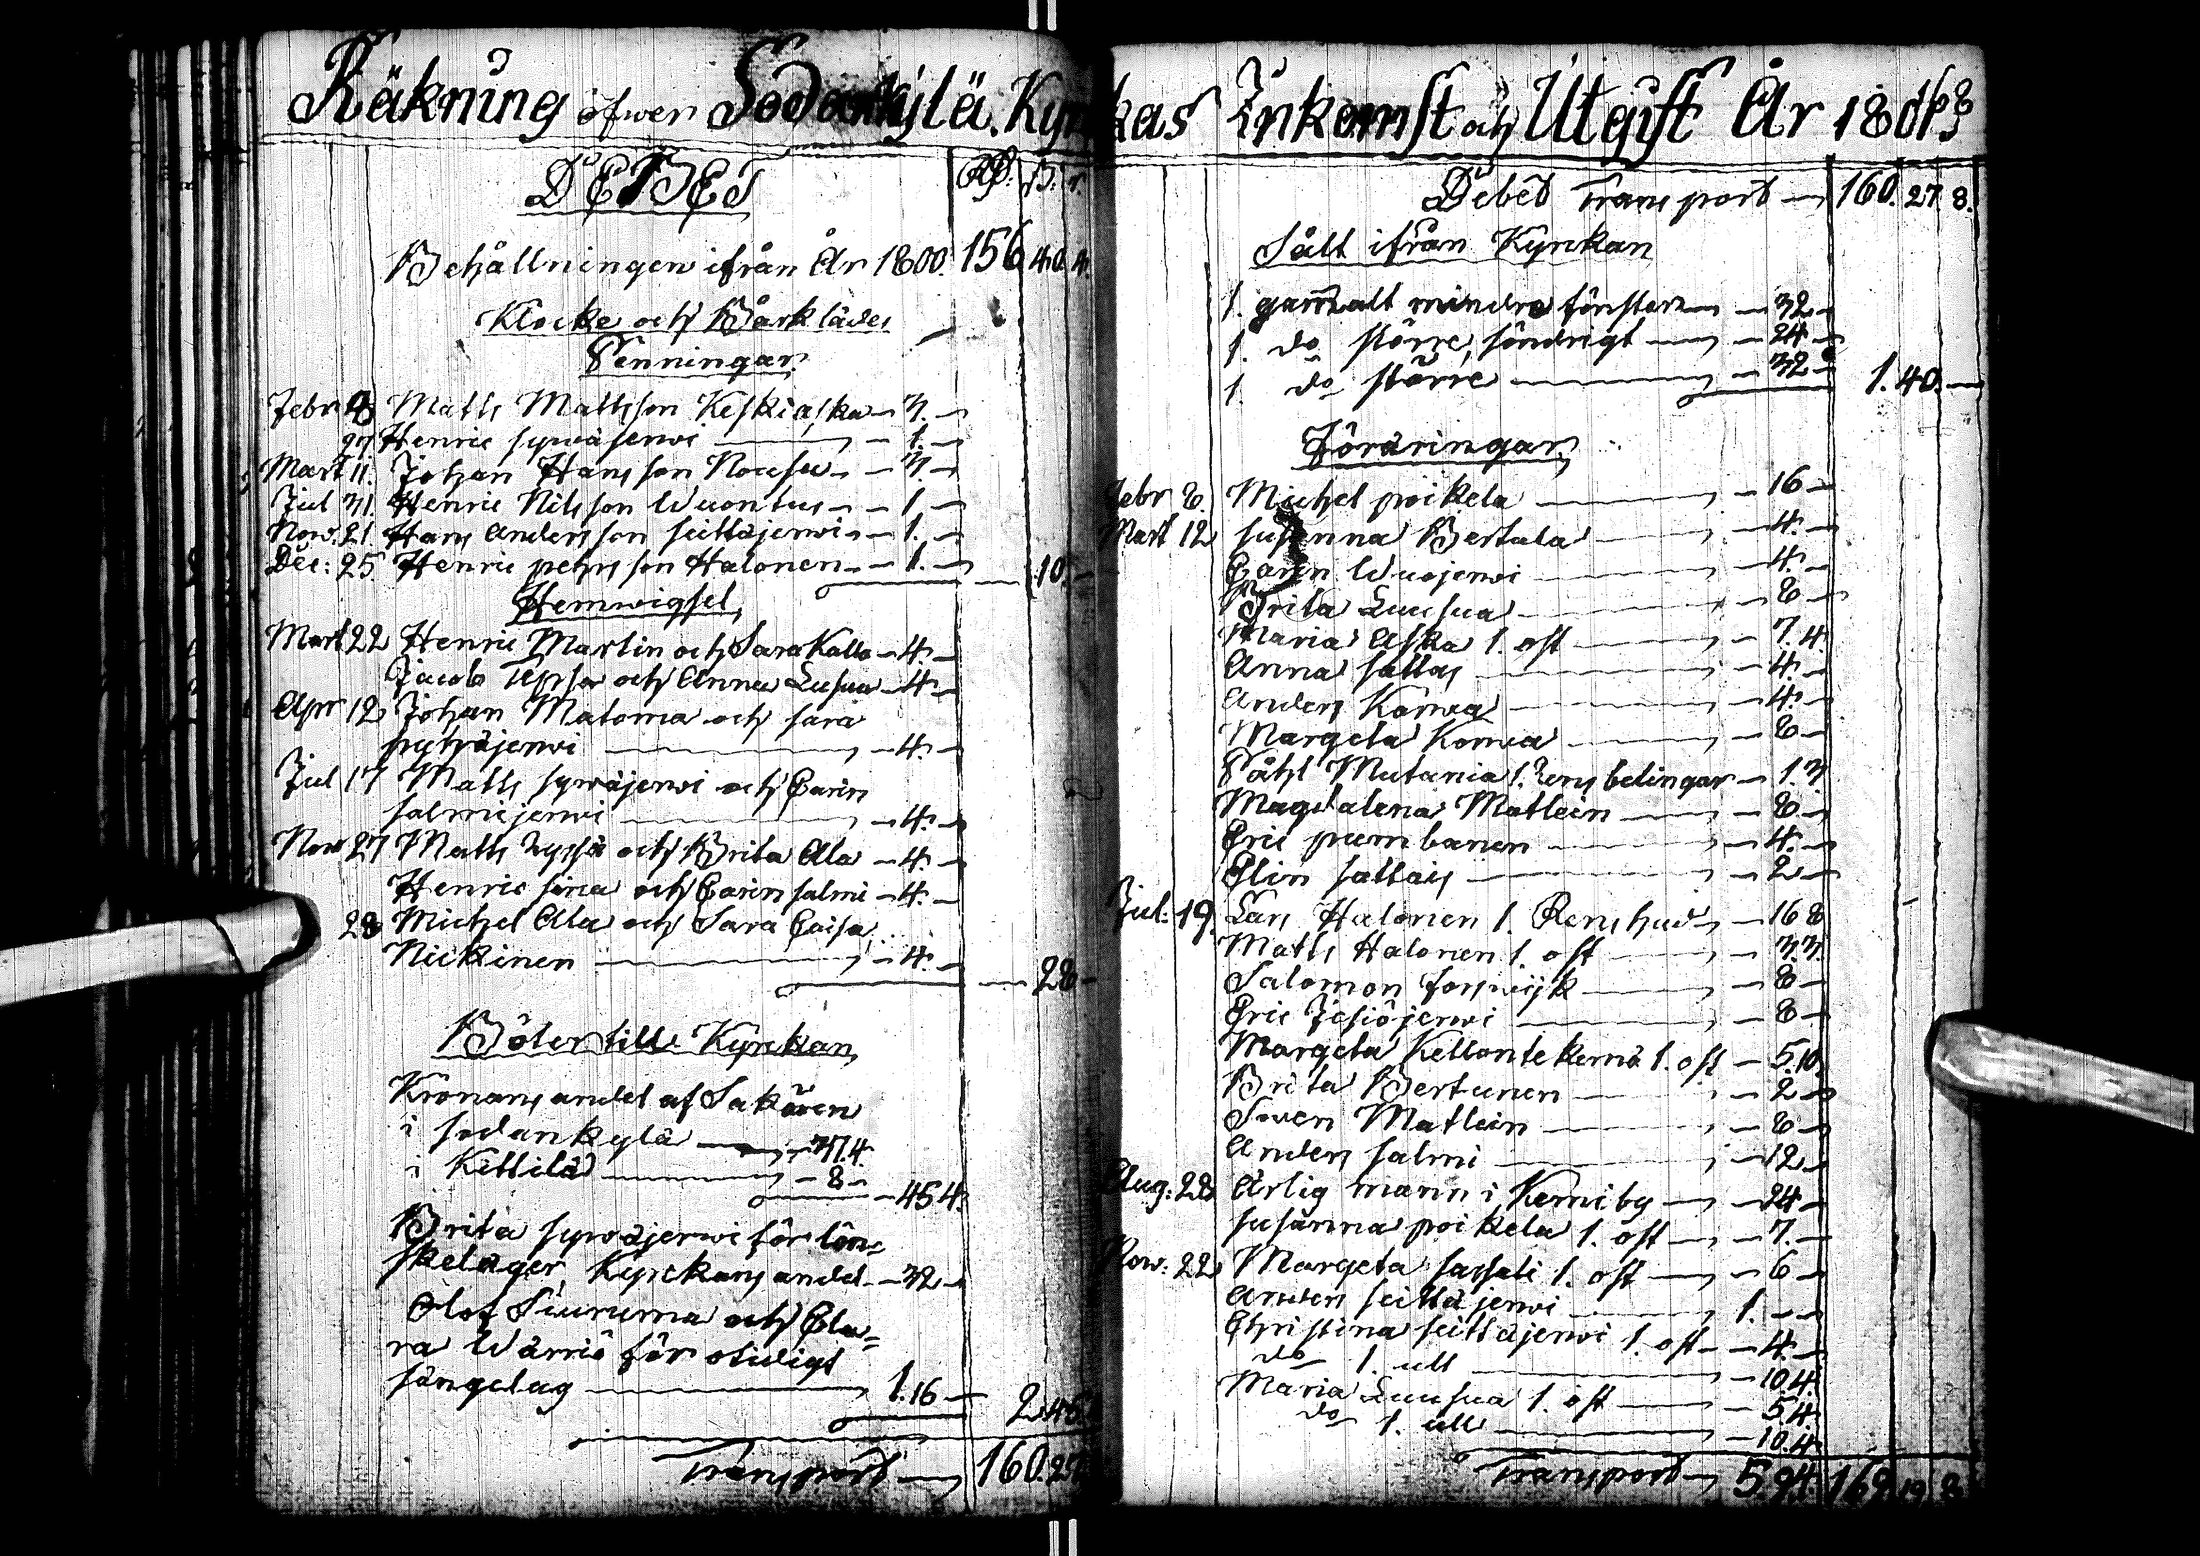 Räkning öfwer Sodankylä Kyrkas Inkomst och Utgift År 180
DEBET Rd. ß. r.
Behållningen ifrån År 1800. 156 40 4.
Klocke och Bårklädes
Penningar
Febr 8 Matts Mattsson Keskiaska - 3. -
27 Henric sywäjerwi - 1. -
Mart 11. Johan Hansson Nousu - 3. -
Jul 31. Henric Nilsson Wuontus - 1. -
Now. 21. Hans Andersson seittäjerwi - 1. -
Dec: 25 Henric pehrsson Halonen - 1. - 10. -
Hemwigsel
Mart 22 Henric Martin och Sara Kallo - 4. -
Jacob och Anna Lusua - 4. -
Apr 12 Johan Maloma och sara
pyhäjerwi - 4. -
Jul 17 Matts sywäjerwi och Carin
salmijerwi - 4. -
Now 27 Matts och Brita Ala - 4. -
Henric och Carin salmi - 4. -
28 Michel Ala och Sara Caisa
Nickinen - 4. - 28 -
Böter till Kyrkan
Kronans andel af Saköron
i sodankylä - 37. 4.
i Kittilä - 8 -
- 45 4.
Brita sywäjerwi för lön=
skeläger, Kyrckans andel - 32 -
Olof Siuruma och Cla=
ra Wärriö för otidigt
sängelag 1. 16 - 2. 45.
Transport 160. 27.
Debet Transport 160. 27. 8.
Sålt ifrån Kyrkan
1. gammalt mindre fönster - 32 -
1. do större, söndrigt - 24 -
1. do större - 32 - 1. 40. -
Föräringar
Febr 8. Michel poikela - 16 -
Mart 12 susanna Bertula - 4. -
Carin Wuojerwi - 4. -
Brita Luusua - 8 -
Maria Aska 1. ost - 7. 4.
Anna sattas - 4. -
Anders Korwa - 4. -
Margeta Korwa - 8 -
Påhl Mutania 1. Rens belingar - 1. 3.
Magdalena Matlein - 8 -
Eric pumbanen - 4. -
Elin sattais - 2 -
Jul: 19. Lars Halonen 1. Renshud - 16 8
Matts Halonen 1. ost - 3. 3.
Salomon forswijk - 8 -
Eric Jesiöjerwi - 8 -
Margeta Kellontekemä 1. ost - 5. 10.
Brita Bertunen - 2 -
Swen Matlein - 8 -
Anders salmi - 12 -
Aug: 28 Ärlig mann i Kemiby - 24 -
susanna poikela 1. ost - 7. -
Now: 22 Margeta sassali 1. ost - 6 -
Anders seittäjerwi 1. - -
Christina seittäjerwi 1. ost - 4. -
do 1. ull - 10. 4.
Maria Luusua 1. ost - 5. 4.
do 1. ull - 10. 4.
Transport 5. 9 4. 162 19 8